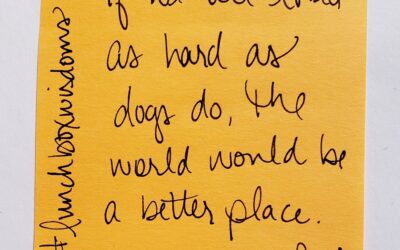 as hard as
dogs do, the
world would be
a better place.
#lunchboxwisdoms